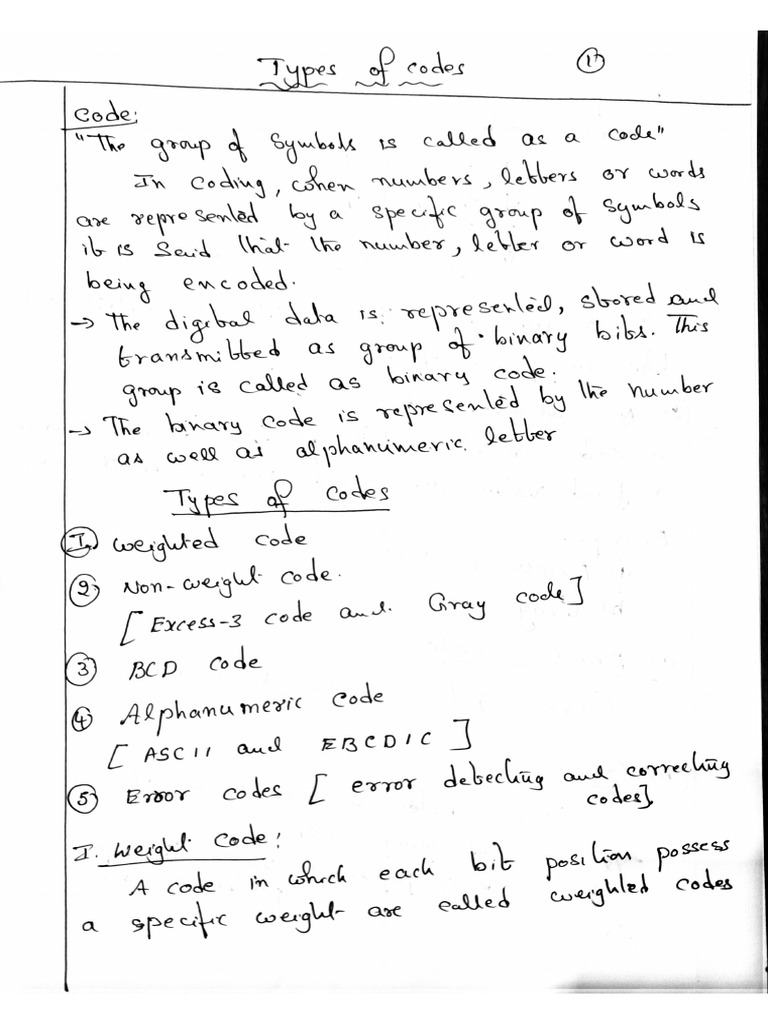 Types of codes ①
Code:
"The group of symbols is called as a code"
In coding, when numbers, letters or words
are represented by a specific group of symbols
it is said that the number, letter or word is
being encoded.
→ The digital data is represented, stored and
transmitted as group of binary bits. This
group is called as binary code.
→ The binary code is represented by the number
as well as alphanumeric letter
Types of codes
I. weighted code
② Non-weight code.
[Excess-3 code and Gray code]
③ BCD code
④ Alphanumeric code
[ASCII and EBCDIC]
⑤ Error codes [error detecting and correcting
codes].
I. Weight code:
A code in which each bit position possess
a specific weight are called weighted codes